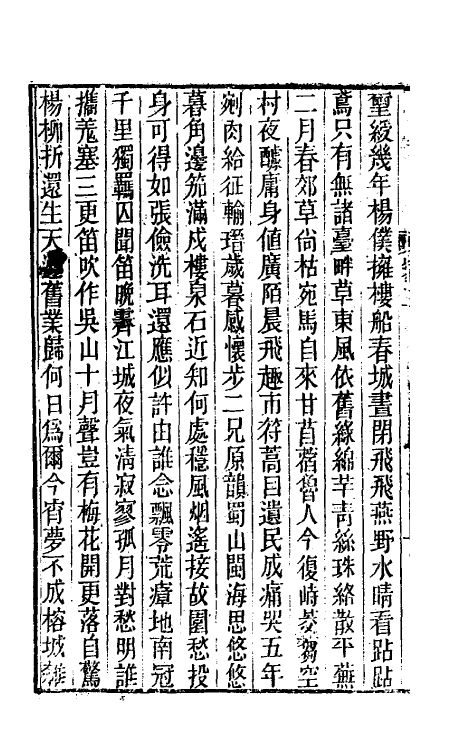 璽綬幾年楊僕擁樓船春城晝閉飛飛燕野水晴看跕跕
鳶只有無諸臺畔草東風依舊綠綿芊靑絲珠絡散平蕪
二月春郊草尙枯宛馬自來甘苜蓿魯人今復峙芻空
村夜醵庸身値廣陌晨飛趣市符蒿目遺民成痛哭五年
剜肉給征輸 歲暮感懷步二兄原韻蜀山閩海思悠悠
暮角邊笳滿戍樓泉石近知何處穩風烟遙接故園愁投
身可得如張儉洗耳還應似許由誰念飄零荒瘴地南冠
千里獨羈囚聞笛晚霽江城夜氣淸寂寥孤月對愁明誰
攜羗塞三更笛吹作吳山十月聲豈有梅花開更落自驚
楊柳折還生天 舊業歸何日爲爾今宵夢不成榕城雜